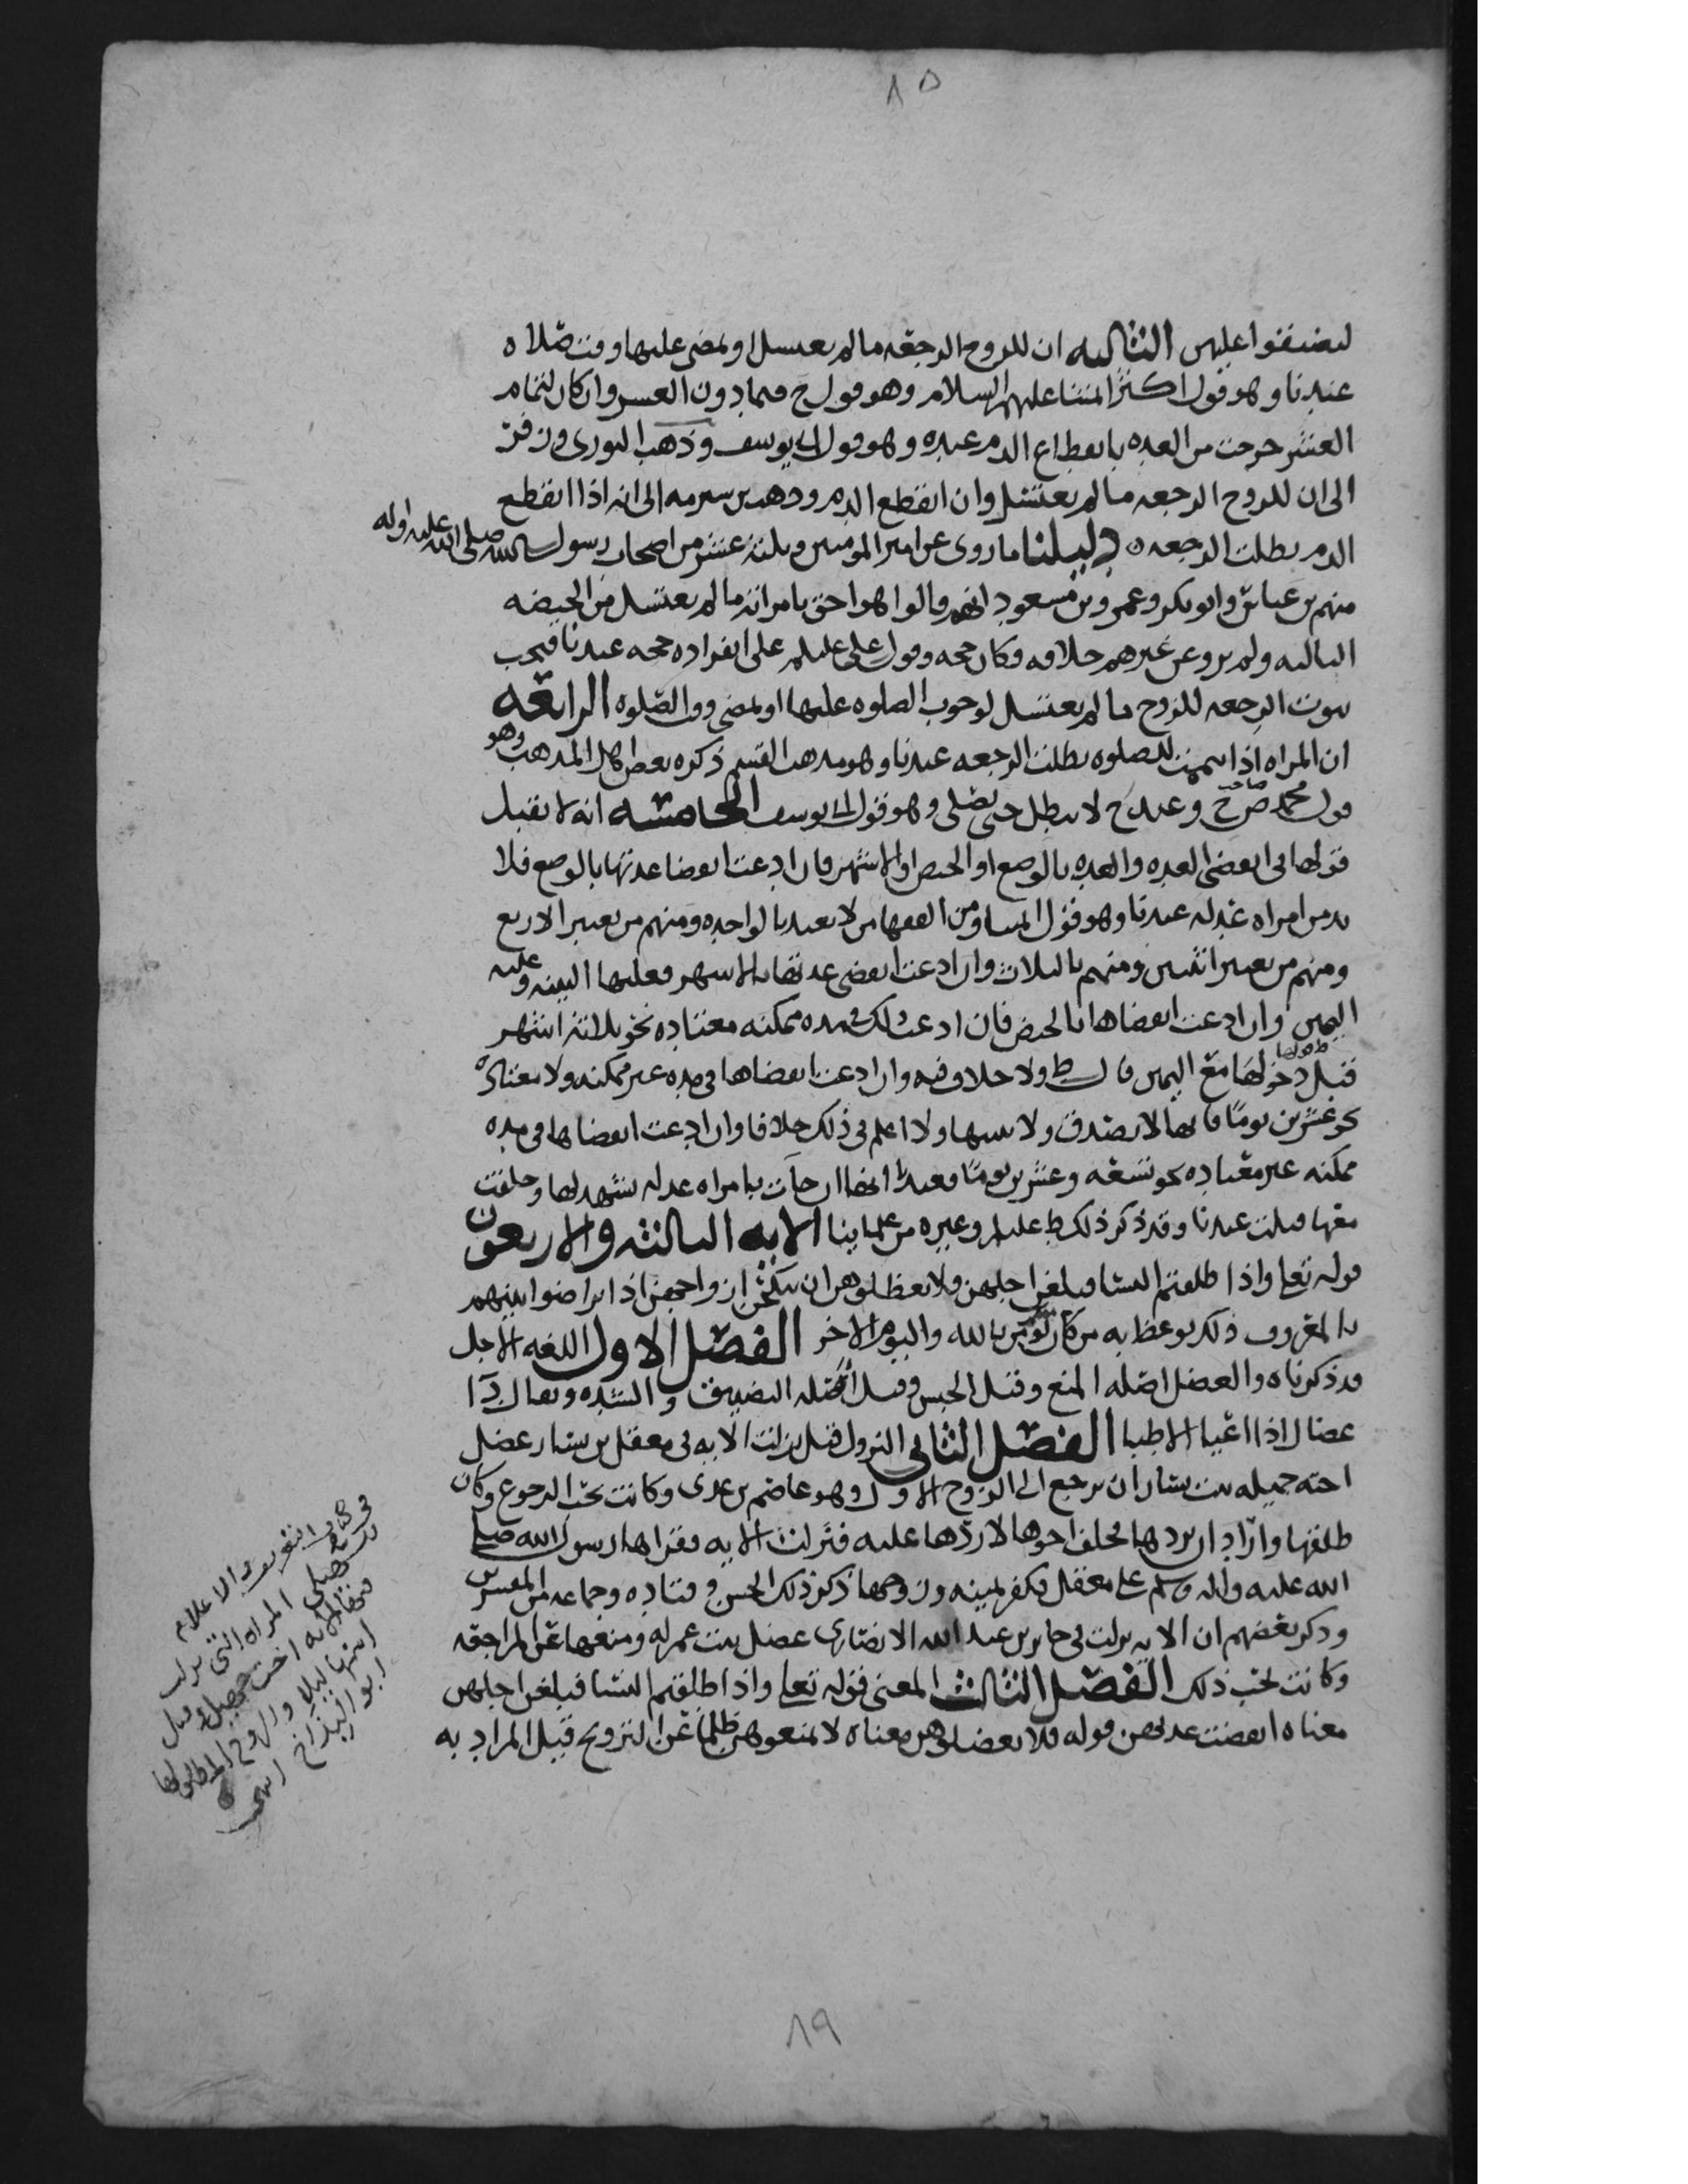 ٨٥
لتضيقوا عليهن الثالثه ان للزوج الرجعه ما لم تغتسل او يمضى عليها وقت صلاه
عندنا وهو قول اكثر ائمتنا عليهم السلام وهو قول ح فيما دون العشر وان كان لتمام
العشر خرجت من العده بانقطاع الدم عنده وهو قول ابي يوسف وذهب الثورى وزفر
الى ان للزوج الرجعه ما لم تغتسل وان انقطع الدم وذهب بن شبرمه الى انه اذا انقطع
الدم بطلت الرجعه ٥ دليلنا ما روى عن امير المومنين وثلثه عشر من اصحاب رسول الله صلى الله عليه واله
منهم بن عباس وابو بكر وعمر وبن مسعود انهم قالوا هو احق بامراته ما لم تغتسل من الحيضه
الثالثه ولم يرو عن غيرهم خلافه فكان حجه وقول على عليلم على انفراده حجه عندنا فيجب
ثبوت الرجعه للزوج ما لم تغتسل لوجوب الصلوه عليها او يمضى وقت الصلوه الرابعه
ان المراه اذا تيممت للصلوه بطلت الرجعه عندنا وهو مذهب القسم ذكره بعض اهل المذهب وهو
قول محمد صاحب ح وعند ح لا تبطل حتى تصلى وهو قول ابي يوسف الخامسه انه لا يقبل
قولها فى انقضى العده والعده بالوضع او الحيض او الاشهر فان ادعت انقضا عدتها بالوضع فلا
بد من امراه عدله عندنا وهو قول ومن الفقها من لا يعتد بالواحده ومنهم من يعتبر الاربع
ومنهم من يعتبر اثنين ومنهم بالثلاث وان ادعت انقضى عدتها بالاشهر فعليها البينه وعليه
اليمين وان ادعت انقضاها بالحيض فان ادعت ذلك فى مده ممكنه معتاده نحو ثلاثه اشهر
قبل قولها مع اليمين قال ط ولا خلاف فيه وان ادعت انقضاها فى مده غير ممكنه ولا معتاده
نحو عشرين يوما فانها لا تصدق ولا ببينتها ولا اعلم فى ذلك خلافا وان ادعت انقضاها فى مده
ممكنه غير معتاده نحو تسعه وعشرين يوما فعندنا انها ان جآت بامراه عدله تشهد لها وحلفت
معها قبلت عندنا وقد ذكر ذلك ط عليلم وغيره من علماينا الايه الثالثه والاربعون
قوله تعلى واذا طلقتم النسا فبلغن اجلهن ولا تعظلوهن ان ينكحن ازواجهن اذا تراضوا بينهم
بالمعروف ذلك يوعظ به من كان يومن بالله واليوم الاخر الفصل الاول اللغه الاجل
قد ذكرناه والعضل اصله المنع وقيل الحبس وقيل اصله التضييق والشده ويقال دآ
عضال اذا اعيا الاطبا الفصل الثانى النزول قيل نزلت الايه فى معقل بن يسار عضل
اخته جميله بنت يسار ان ترجع الى الزوج الاول وهو عاصم بن عدى وكانت تحب الرجوع وكان
طلقها واراد ان يردها فحلف اخوها لا ردها عليه فنزلت الايه فقراها رسول الله صلى
الله عليه واله وسلم على معقل فكفر يمينه وزوجها ذكر ذلك الحسن وقتاده وجماعه من المفسرين
وذكر بعضهم ان الايه نزلت فى جابر بن عبد الله الانصارى عضل بنت عم له ومنعها عن المراجعه
وكانت تحب ذلك الفصل الثالث المعنى قوله تعلى واذا طلقتم النسا فبلغن اجلهن
معناه انقضت عدتهن قوله فلا تعضلوهن معناه لا تمنعوهن ظلما عن التزويج قيل المراد به
فى كتاب التعريف والاعلام
للسهيلى المراه التى نزلت
فيها الايه اخت جميل وقيل
اسمها ليلا وزوجها المطلق لها
ابو البداح انتهى
٨٩